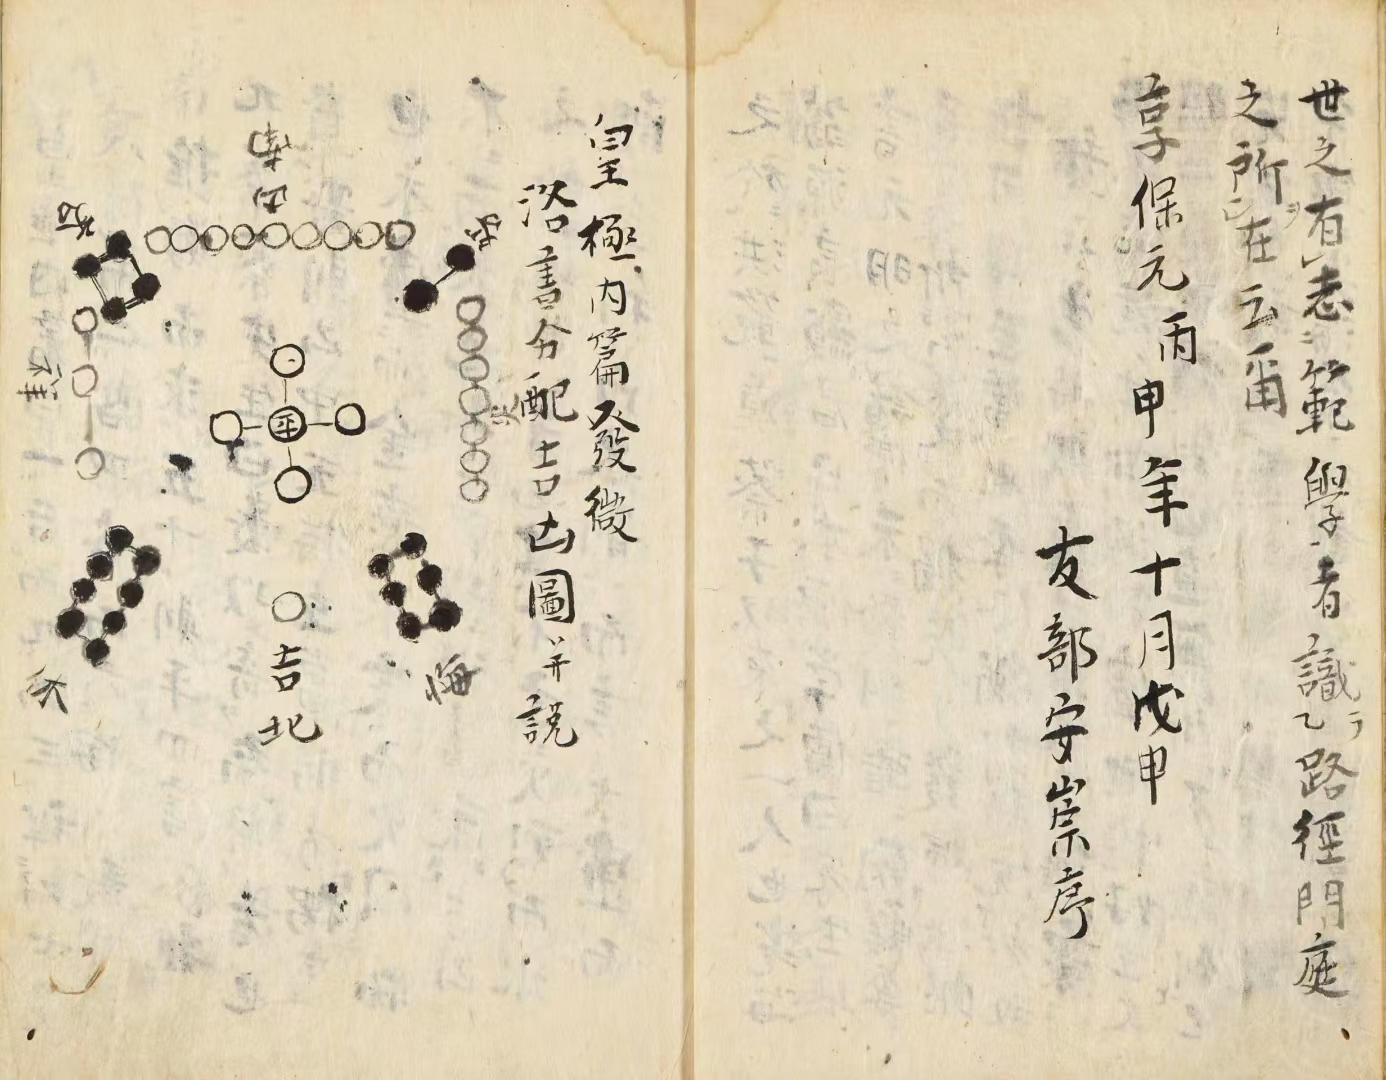 世之有志範學者識乙路徑門庭
之所在云爾
享保元丙申年十月戊申
友部安崇序
皇極内篇發微
洛書分配吉凶圖并説
南
凶
咎
吝
災
祥
平
悔
休
吉
北